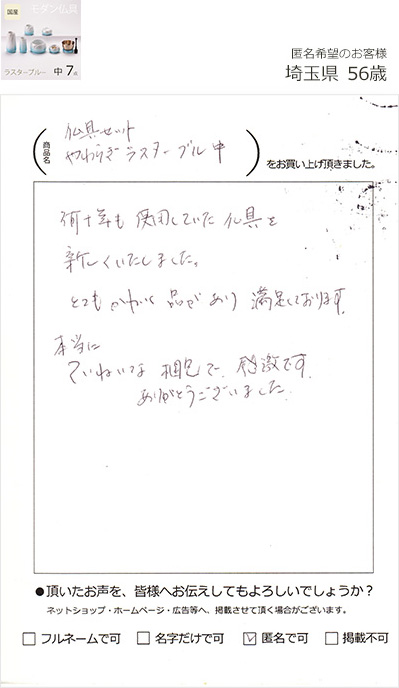 国産
モダン仏具
ラスターブルー 中 7点
匿名希望のお客様
埼玉県 56歳
商品名
仏具セット
やわらぎ ラスターブル 中
をお買い上げ頂きました。
何十年も使用していた仏具を
新しくいたしました。
とてもかわいく品があり満足しております。
本当に
ていねいな梱包で、感激です。
ありがとうございました
●頂いたお声を、皆様へお伝えしてもよろしいでしょうか?
ネットショップ・ホームページ・広告等へ、掲載させて頂く場合がございます。
フルネームで可 名字だけで可 匿名で可 掲載不可